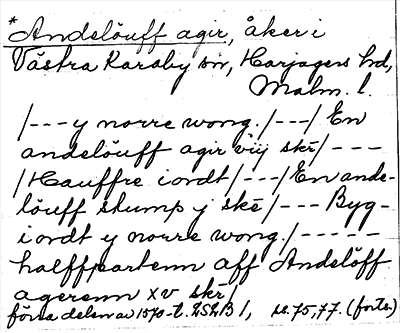 *Andelöuff agir, åker i
Västra Karaby sn, Harjagers hd,
Malm. l.
/--- y norre wong. /---/ En
andelöuff agir viij skr/ ---
/Hauffre i ordt /---/ En ande-
löuff stump j skr/ --- Byg-
i ordt y norre wong. /-----
halffpartenn aff Andelöff
agerenn xv skr/
förra delen av 1570-t. LSLB 1, s. 75, 77. (forts.)